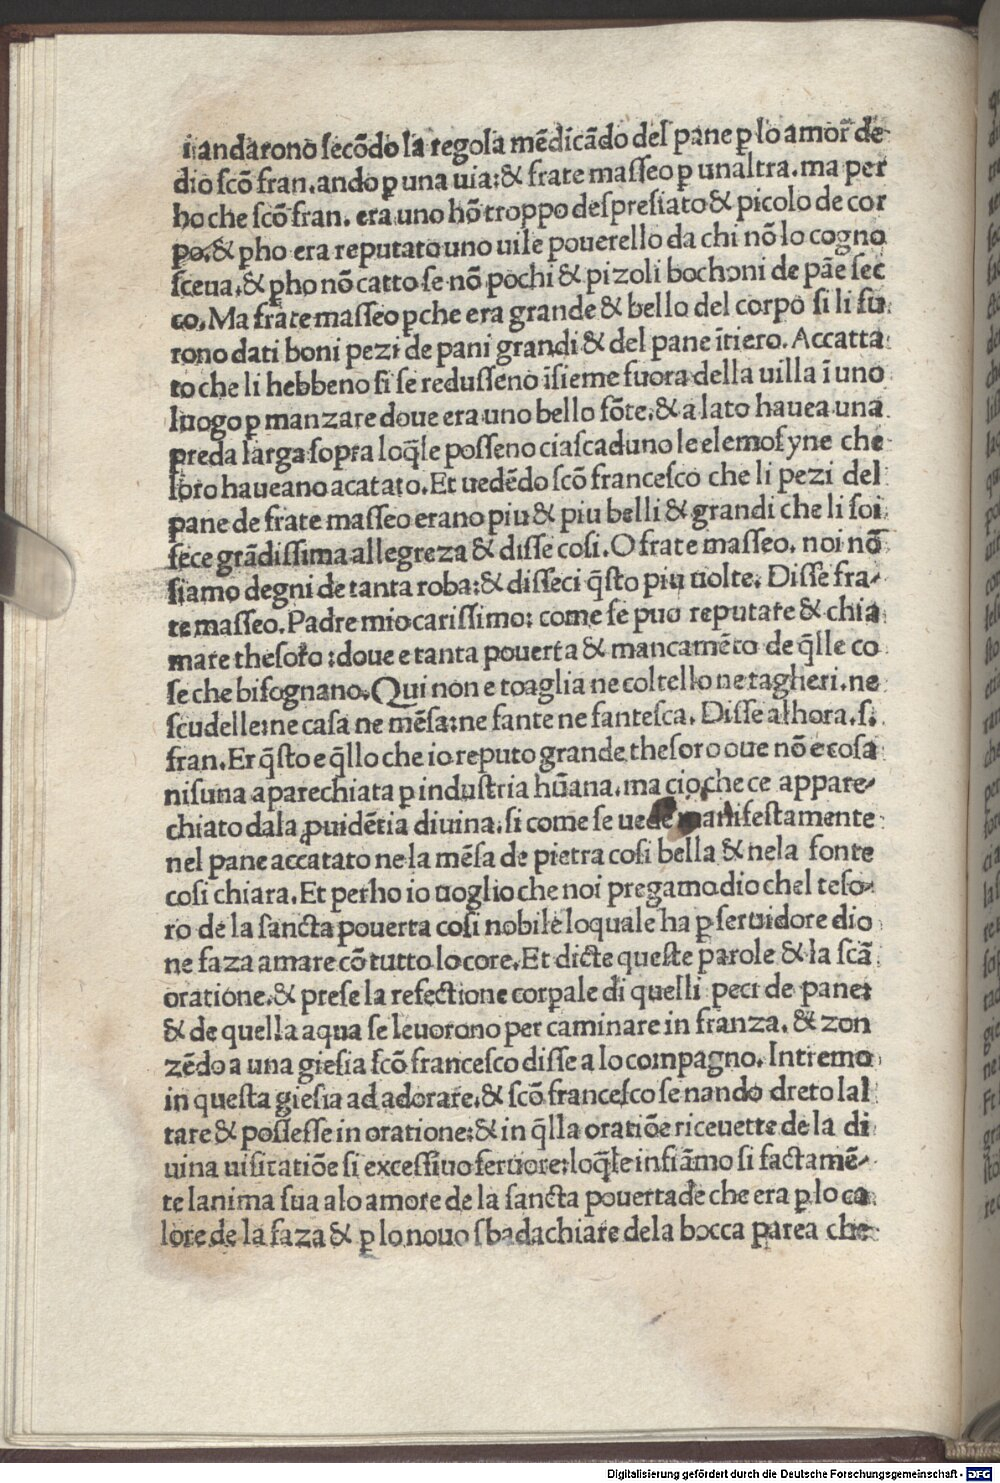 i andarono ſecōdo la regola mēdicādo del pane ꝑ lo amor de
dio ſcō fran. ando ꝑ una uia: & frate maſſeo ꝑ unaltra. ma per
ho che ſcō fran. era uno hō troppo deſpreſiato & picolo de cor
po. & ꝑho era reputato uno uile pouerello da chi nō lo cogno
ſceua. & ꝑho nō catto ſe nō pochi & pizoli bochoni de pāe ſec
co. Ma frate maſſeo ꝑche era grande & bello del corpo ſi li fu
rono dati boni pezi de pani grandi & del pane ītiero. Accatta
to che li hebbeno ſi ſe reduſſeno īſieme fuora della uilla ī uno
luogo ꝑ manzare doue era uno bello fōte. & a lato hauea una
preda larga ſopra loq̄le poſſeno ciaſcaduno le elemoſyne che
loro haueano acatato. Et uedēdo ſcō franceſco che li pezi del
pane de frate maſſeo erano piu & piu belli & grandi che li ſoi
fece grādiſſima allegreza & diſſe coſi. O frate maſſeo. noi nō
ſiamo degni de tanta roba: & diſſeci q̄ſto piu uolte. Diſſe fra-
te maſſeo. Padre mio cariſſimo: come ſe puo reputare & chia
mare theſoro: doue e tanta pouerta & mancamēto de q̄lle co
ſe che biſognano. Qui non e toaglia ne coltello ne taglieri. ne
ſcudelle: ne caſa ne mēſa: ne fante ne fanteſca. Diſſe alhora. ſ.
fran. Et q̄ſto e q̄llo che io reputo grande theſoro oue nō e coſa
niſuna aparechiata ꝑ induſtria hūana. ma cio che ce appare-
chiato dala ꝓuidētia diuina. ſi come ſe uede manifeſtamente
nel pane accatato ne la mēſa de pietra coſi bella & nela fonte
coſi chiara. Et perho io uoglio che noi pregamo dio chel teſo-
ro de la ſancta pouerta coſi nobile loquale ha ꝑ ſeruidore dio
ne faza amare cō tutto lo core. Et dicte queſte parole & la ſcā
oratione. & preſe la refectione corpale di quelli peci de pane:
& de quella aqua ſe leuorono per caminare in franza. & zon
zēdo a una gieſia ſcō franceſco diſſe a lo compagno. Intremo
in queſta gieſia ad adorare. & ſcō franceſco ſe nando dreto lal
tare & poſſeſſe in oratione: & in q̄lla oratiōe riceuette de la di
uina uiſitatiōe ſi exceſſiuo feruore: loq̄le infiāmo ſi factamē-
te lanima ſua alo amore de la ſancta pouerta de che era ꝑ lo ca
lore de la faza & ꝑ lo nouo ſbadachiare dela bocca parea che
Digitalisierung gefördert durch die Deutsche Forschungsgemeinschaft - DFG